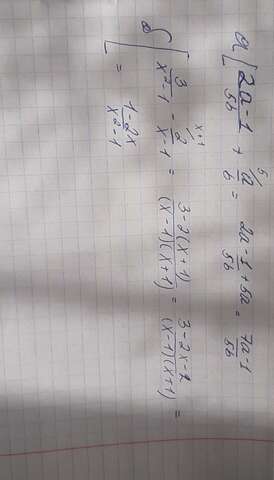 а) 2a-1/5b + a/b ⁵ = 2a-1+5a/5b = 7a-1/5b
б) 3/x²-1 - 2/x-1 ˣ⁺¹ = 3-2(x+1)/(x-1)(x+1) = 3-2x-2/(x-1)(x+1) =
= 1-2x/x²-1